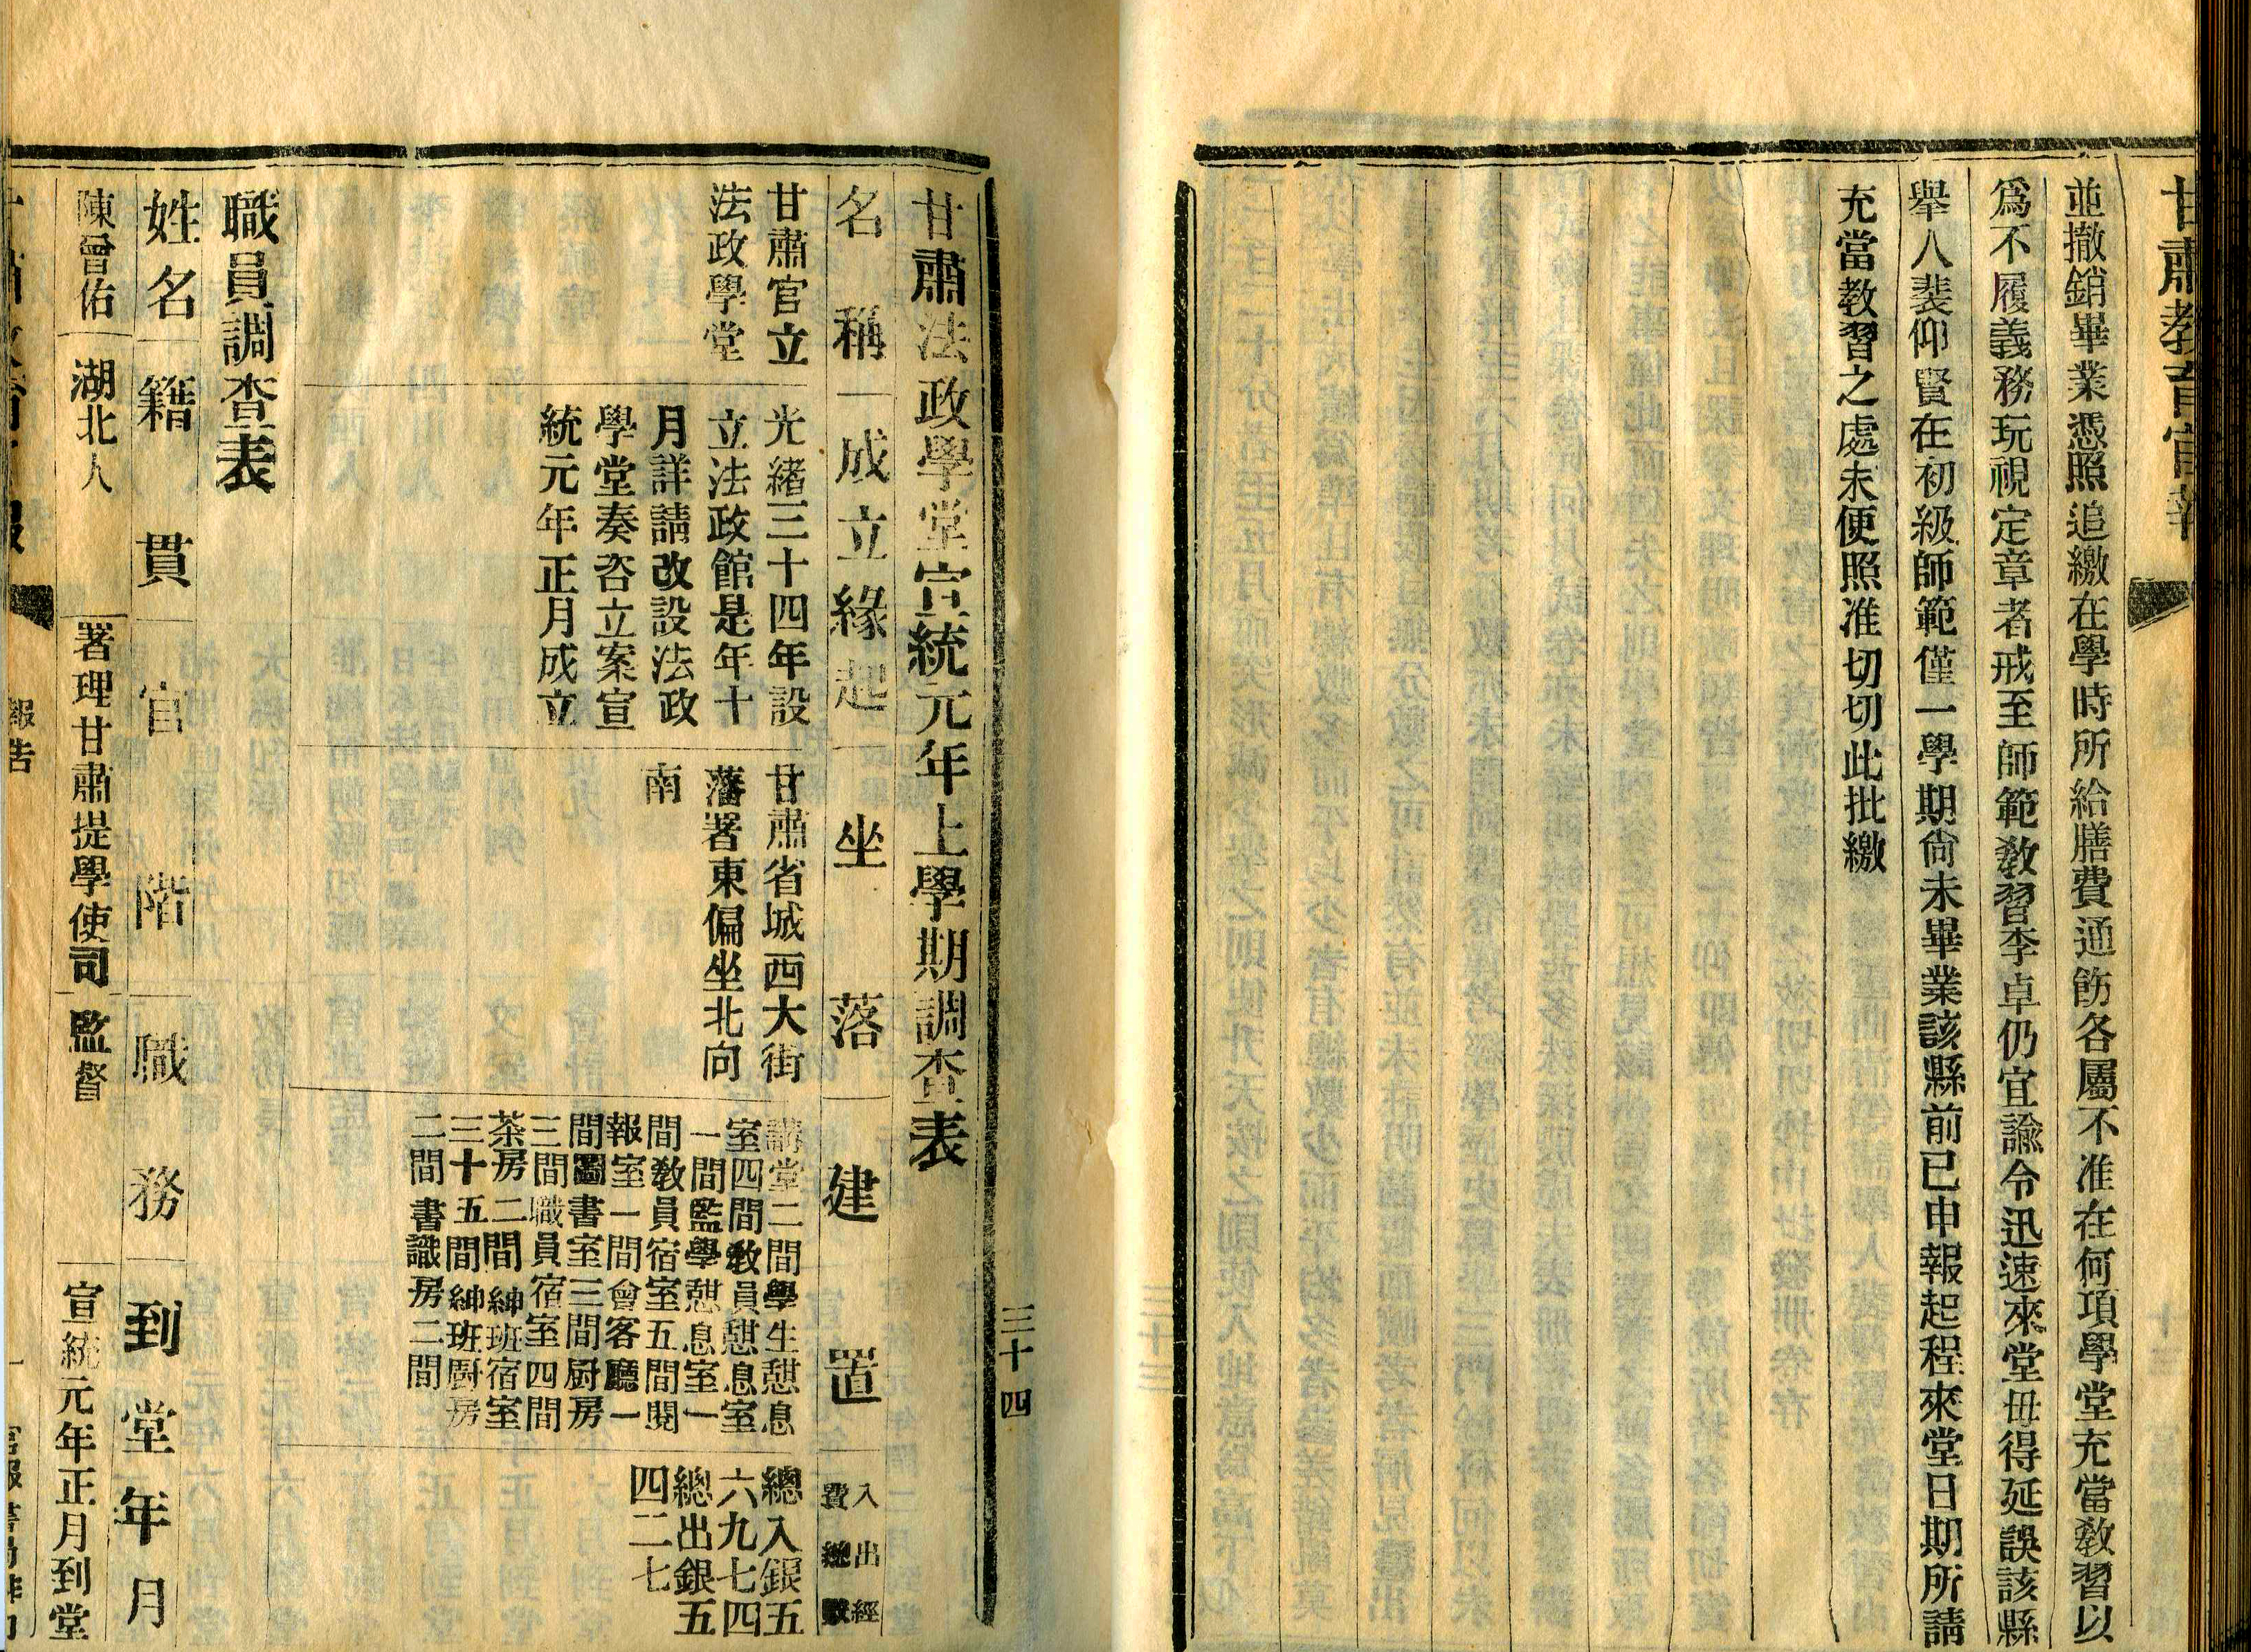 甘肅教育官報
並撤銷畢業憑照追繳在學時所給膳費通飭各屬不准在何項學堂充當敎習以
爲不履義務玩視定章者戒至師範敎習李卓仍宜諭令迅速來堂毋得延誤該縣
舉人裴仰賢在初級師範僅一學期尙未畢業該縣前已申報起程來堂日期所請
充當教習之處未便照准切切此批繳
三十四
甘肅法政學堂宣統元年上學期調查表
名稱
成立緣起
坐落
建置
入出經
費總數
甘肅官立
法政學堂
光緒三十四年設
立法政館是年十
月詳請改設法政
學堂奏咨立案宣
統元年正月成立
甘肅省城西大街
藩署東偏坐北向
南
講堂二間學生憇息
室四間敎員憇息室
一間監學憇息室一
間敎員宿室五間閱
報室一間會客廳一
間圖書室三間厨房
三間職員宿室四間
茶房二間紳班宿室
三十五間紳班厨房
二間書識房二間
總入銀五
六九七四
總出銀五
四二七
職員調查表
姓名
籍貫
官階
職務
到堂年月
陳曾佑
湖北人
署理甘肅提學使司
監督
宣統元年正月到堂
報告